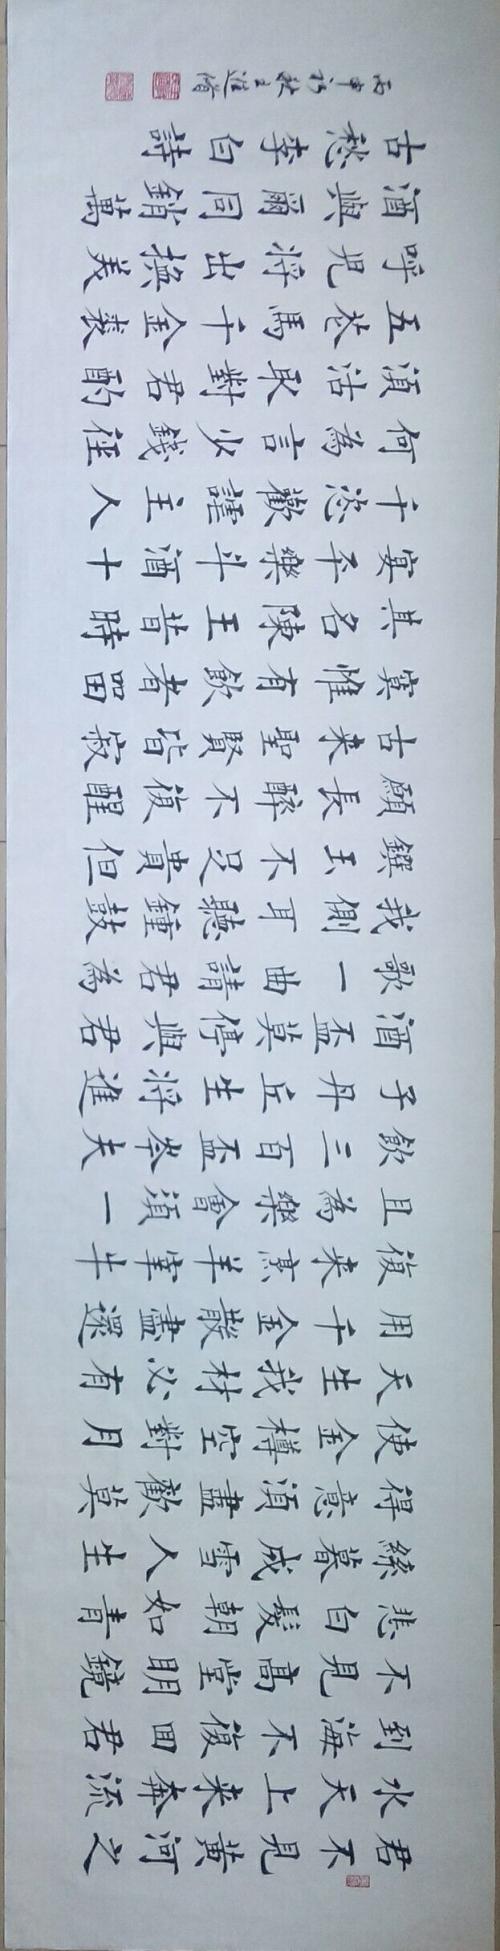 君不見黄河之
水天上来奔流
到海不復回君
不見高堂明鏡
悲白髮朝如青
絲暮成雪人生
得意須盡歡莫
使金樽空對月
天生我材必有
用千金散盡還
復来烹羊宰牛
且為樂會須一
飲三百盃岑夫
子丹丘生將進
酒盃莫停與君
歌一曲請君為
我側耳聽鍾鼓
饌玉不足貴但
願長醉不復醒
古来聖賢皆寂
寞惟有飲者畱
其名陳王昔時
宴平樂斗酒十
千恣歡謔主人
何為言少錢徑
須沽取對君酌
五花馬千金裘
呼兒將出換美
酒與爾同銷萬
古愁李白詩
丙申初秋王進脩